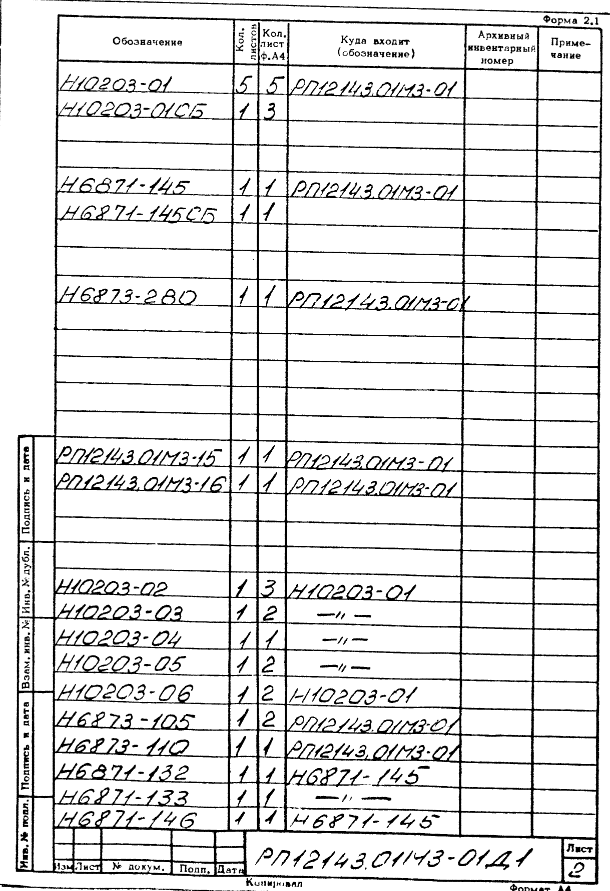 Форма 2.1
Обозначение Кол. листов Кол. лист ф.А4 Куда входит (обозначение) Архивный инвентарный номер Приме-чание
Н10203-01 5 5 РП12143.01М3-01
Н10203-01СБ 1 3
Н6871-145 1 1 РП12143.01М3-01
Н6871-145СБ 1 1
Н6873-280 1 1 РП12143.01М3-01
РП12143.01М3-15 1 1 РП12143.01М3-01
РП12143.01М3-16 1 1 РП12143.01М3-01
Н10203-02 1 3 Н10203-01
Н10203-03 1 2 —〃—
Н10203-04 1 1 —〃—
Н10203-05 1 2 —〃—
Н10203-06 1 2 Н10203-01
Н6873-105 1 2 РП12143.01М3-01
Н6873-110 1 1 РП12143.01М3-01
Н6871-132 1 1 Н6871-145
Н6871-133 1 1 —〃—
Н6871-146 1 1 Н6871-145
Инв. № подл. Подпись и дата Взам. инв. № Инв. № дубл. Подпись и дата
РП12143.01М3-01Д1
Лист
2
Изм. Лист № докум. Подп. Дата
Копировал Формат А4